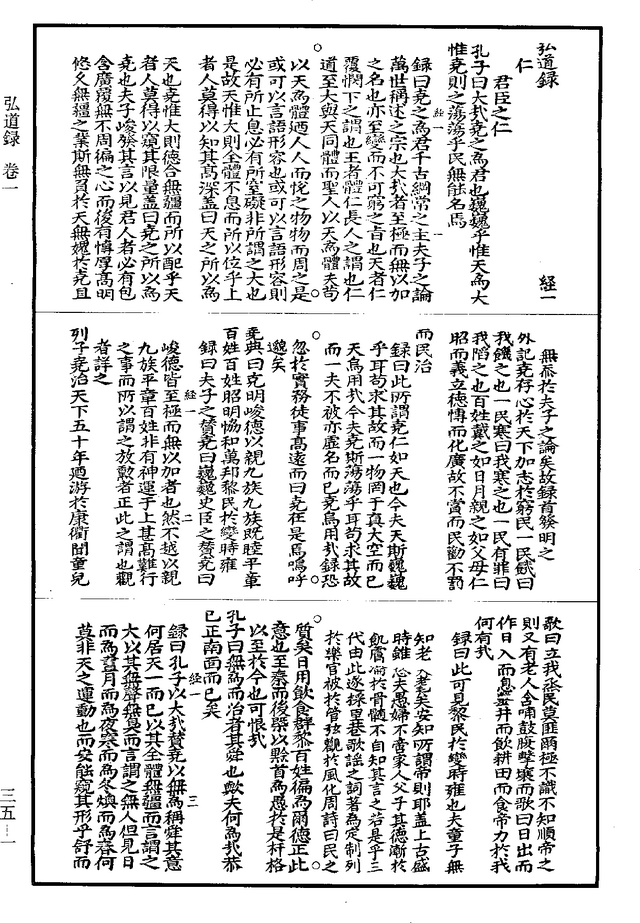 弘道錄
經一
仁
君臣之仁
孔子曰大哉堯之為君也巍巍乎惟天為大
惟堯則之蕩蕩乎民無能名焉
錄曰堯之為君千古綱常之主夫子之論
萬世稱述之宗也大哉者至極而無以加
之名也亦至變而不可窮之旨也天者仁
覆憫下之謂也王者體仁長人之謂也仁
道至大與天同體而聖人以天為體夫苟
以天為體迺人人而悅之物物而周之是
或可以言語形容也或可以言語形容則
必有所止息必有所窒礙非所謂之大也
是故天惟大則全體不息而所以位乎上
者人莫得以知其高深蓋曰天之所以為
天也堯惟大則德合無疆而所以配乎天
者人莫得以窺其限量蓋曰堯之所以為
堯也夫子峻發其言以見君人者必有包
含廣覆無不周徧之心而後有博厚高明
悠久無疆之業斯無負於天無媿於堯且
無忝於夫子之論矣故錄首發明之
外記堯存心於天下加志於窮民一民饑曰
我饑之也一民寒曰我寒之也一民有罪曰
我陷之也百姓戴之如日月親之如父母仁
昭而義立德博而化廣故不賞而民勸不罰
而民治
錄曰此所謂堯仁如天也今夫天斯巍巍
乎耳苟求其故而一物罔于真太空而已
天焉用哉今夫堯斯蕩蕩乎耳苟求其故
而一夫不被亦虛名而已堯焉用哉錄恐
忽於實務徒事高遠而曰堯在是焉嗚呼
邈矣
堯典曰克明峻德以親九族九族既睦平章
百姓百姓昭明恊和萬邦黎民於變時雍
錄曰夫子之贊堯曰巍巍史臣之贊堯曰
峻德皆至極而無以加者也然不越以親
九族平章百姓非有神運于上甚高難行
之事而所以謂之放勲者正此之謂也觀
者詳之
列子堯治天下五十年迺游於康衢聞童兒
歌曰立我烝民莫匪爾極不識不知順帝之
則又有老人含哺鼓腹擊壤而歌曰日出而
作日入而息鑿井而飲耕田而食帝力於我
何有哉
錄曰此可見黎民於變時雍也夫童子無
知老耄矣安知所謂帝則耶蓋上古盛
時雖愚夫愚婦不啻家人父子其德漸於
飢膚淪於骨髓不自知其言之若是乎三
代由此遂採里巷歌謠之詞著為定制列
於樂官被於管弦觀於風化周詩曰民之
質矣日用飲食群黎百姓徧為爾德正此
意也至秦而後槩以黔首為愚於是扞格
以至於今也可恨哉
孔子曰無為而治者其舜也歟夫何為哉恭
已正南面而已矣
錄曰孔子以大哉贊堯以無為稱舜其意
何居天一而已以其全體無疆而言謂之
大以其無聲無臭而言謂之無人但見日
而為晝月而為夜寒而為冬燠而為春何
莫非天之運動也而安能窺其形乎舒而
弘道錄 卷一
三五—一
經一 一
經一 二
經一 三